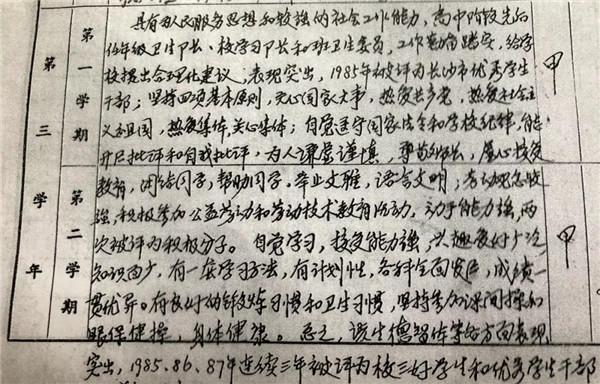 具有为人民服务思想和较强的社会工作能力，高中阶段先后
任年级卫生部长、校学习部长和班卫生委员，工作勤奋踏实，给学
校提出合理化建议；表现突出，1985年被评为长沙市优秀学生
干部；坚持四项基本原则，关心国家大事，热爱共产党，热爱社会主
义祖国，热爱集体，关心集体；自觉遵守国家法令和学校纪律，能
开展批评和自我批评，为人谦虚谨慎，尊敬师长，虚心接受
教育，团结同学，帮助同学。举止文雅，语言文明；劳动观念较
强，积极参加公益劳动和劳动技术教育活动，动手能力强，两
次被评为积极分子。自觉学习，接受能力强，兴趣爱好广泛
知识面广，有一套学习方法，有计划性，各科全面发展，成绩一
贯优异。有良好的锻炼习惯和卫生习惯，坚持参加课间操和
眼保健操，身体健康。总之，该生德智体等各方面表现
突出，1985、86、87年连续三年被评为校三好学生和优秀学生干部
第三学年
第一学期
第二学期
甲
甲